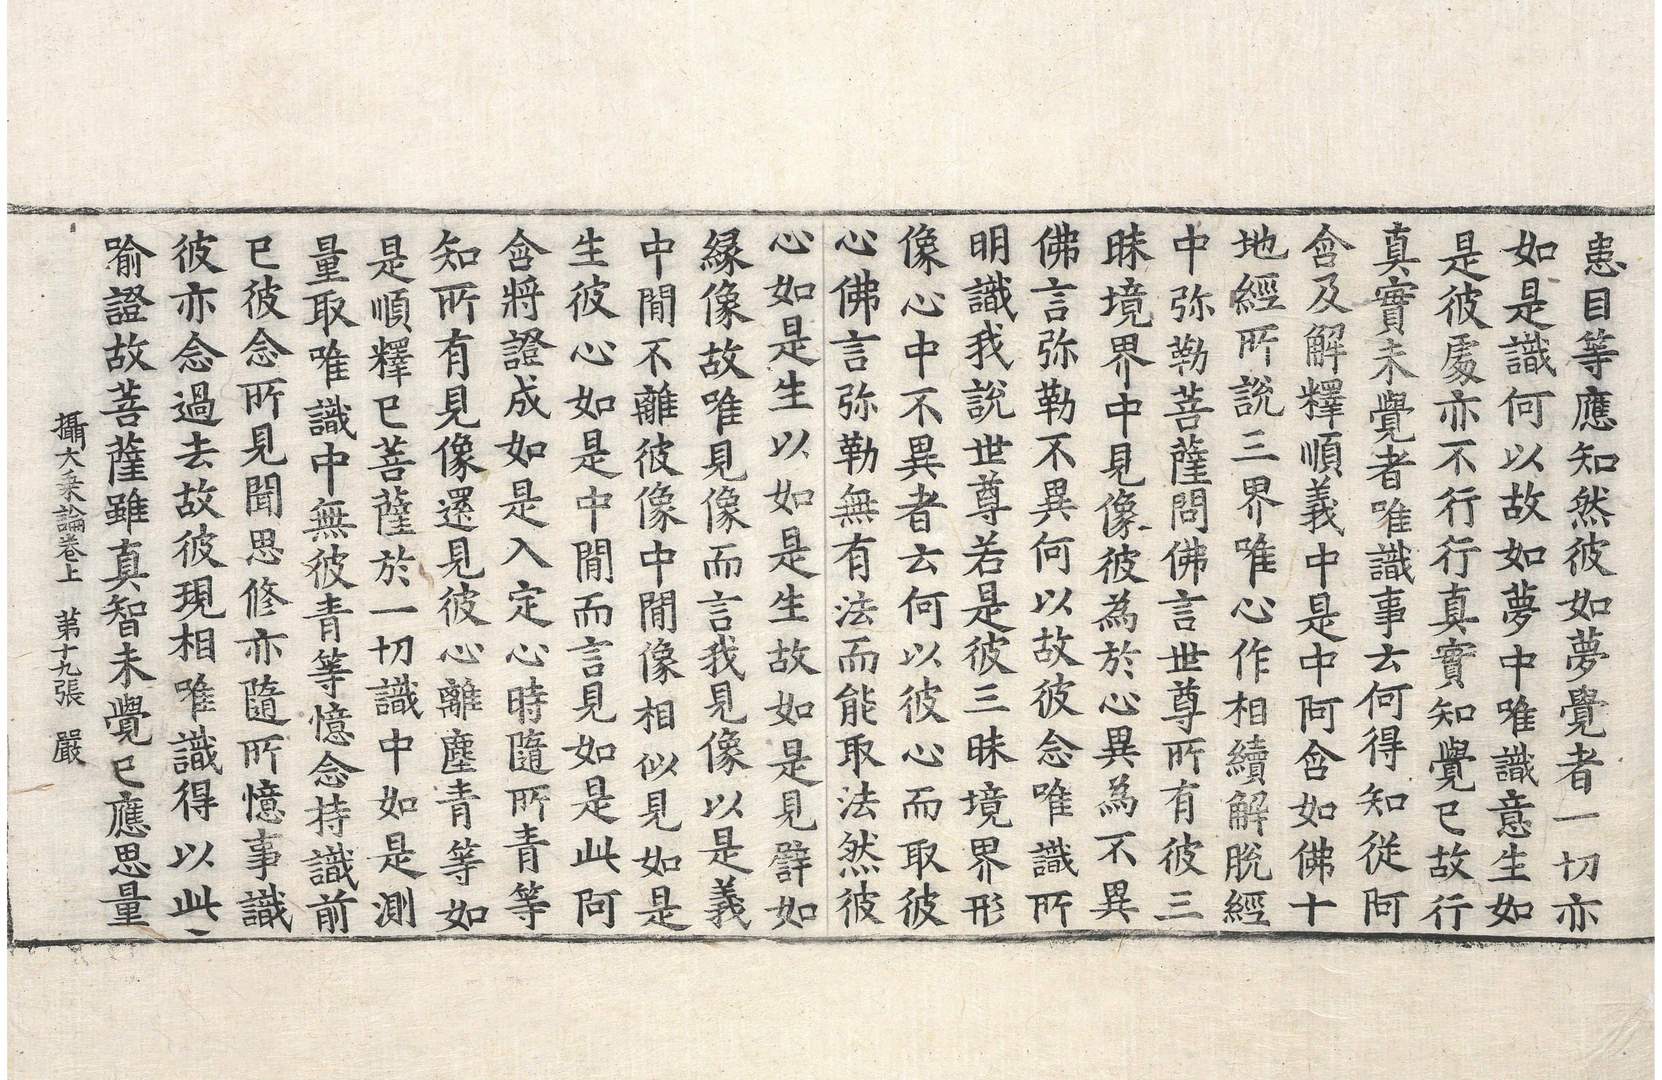 恚目等應知然彼如夢覺者一切亦
如是識何以故如夢中唯識意生如
是彼處亦不行行真實知覺已故行
真實未覺者唯識事云何得知從阿
含及解釋順義中是中阿含如佛十
地經所說三界唯心作相續解脫經
中弥勒菩薩問佛言世尊所有彼三
昧境界中見像彼為於心異為不異
佛言弥勒不異何以故彼念唯識所
明識我說世尊若是彼三昧境界形
像心中不異者云何以彼心而取彼
心佛言弥勒無有法而能取法然彼
心如是生以如是生故如是見譬如
緣像故唯見像而言我見像以是義
中間不離彼像中間像相似見如是
生彼心如是中間而言見如是此阿
含將證成如是入定心時隨所青等
知所有見像還見彼心離塵青等如
是順釋已菩薩於一切識中如是測
量取唯識中無彼青等憶念持識前
已彼念所見聞思修亦隨所憶事識
彼亦念過去故彼現相唯識得以此
喻證故菩薩雖真智未覺已應思量
攝大乘論卷上 第十九張 嚴